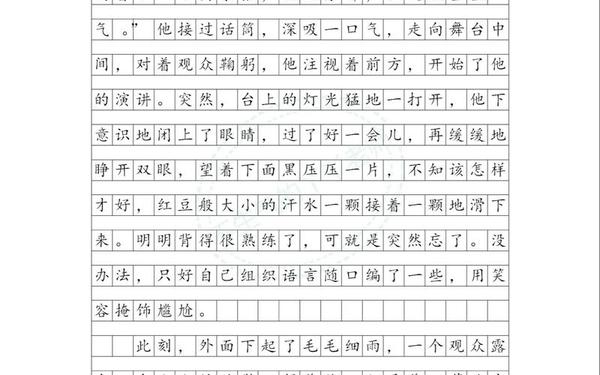 气。”他接过话筒，深吸一口气，走向舞台中
间，对着观众鞠躬，他注视着前方，开始了他
的演讲。突然，台上的灯光猛地一打开，他下
意识地闭上了眼睛，过了好一会儿，再缓缓地
睁开双眼，望着下面黑压压一片，不知该怎样
才好，红豆般大小的汗水一颗接着一颗地滑下
来。明明背得很熟练了，可就是突然忘了。没
办法，只好自己组织语言随口编了一些，用笑
容掩饰尴尬。
此刻，外面下起了毛毛细雨，一个观众露